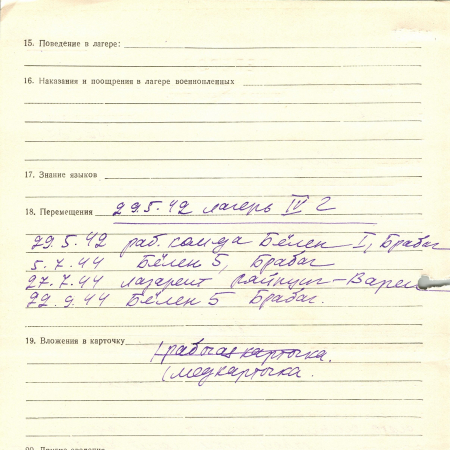 15. Поведение в лагере:
16. Наказания и поощрения в лагере военнопленных
17. Знание языков
18. Перемещения 29.5.42 лагерь IV г
29.5.42 раб. ком-да Бёлен I, Брабаг
5.7.44 Бёлен 5, Брабаг
27.7.44 лазарет
22.9.44 Бёлен 5 Брабаг.
19. Вложения в карточку 1 рабочая карточка.
1 медкарточка.